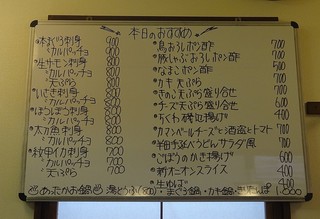 本日のおすすめ
*本まぐろ刺身 900
〃カルパッチョ 900
*生サーモン刺身 800
〃カルパッチョ 900
〃天ぷら 800
*いさき刺身 800
〃カルパッチョ 800
*ほうぼう刺身 800
〃カルパッチョ 800
*太刀魚刺身 800
〃カルパッチョ 800
*紋甲イカ刺身 700
〃カルパッチョ 700
〃天ぷら 700
*鳥おろしポン酢 700
*豚しゃぶおろしポン酢 700
*なまこポン酢 500
*カキ天ぷら 700
*きのこ天ぷら盛り合せ 600
*チーズ天ぷら盛り合せ 650
*ちくわ磯辺揚げ 400
*カマンベールチーズと酒盗とトマト 700
*半田手延べうどんサラダ風 700
*ごぼうのかき揚げ 600
*新オニオンスライス 400
*生ゆば 400
あったかお鍋 湯どうふ(800) まぐろ鍋・カキ鍋 1,000